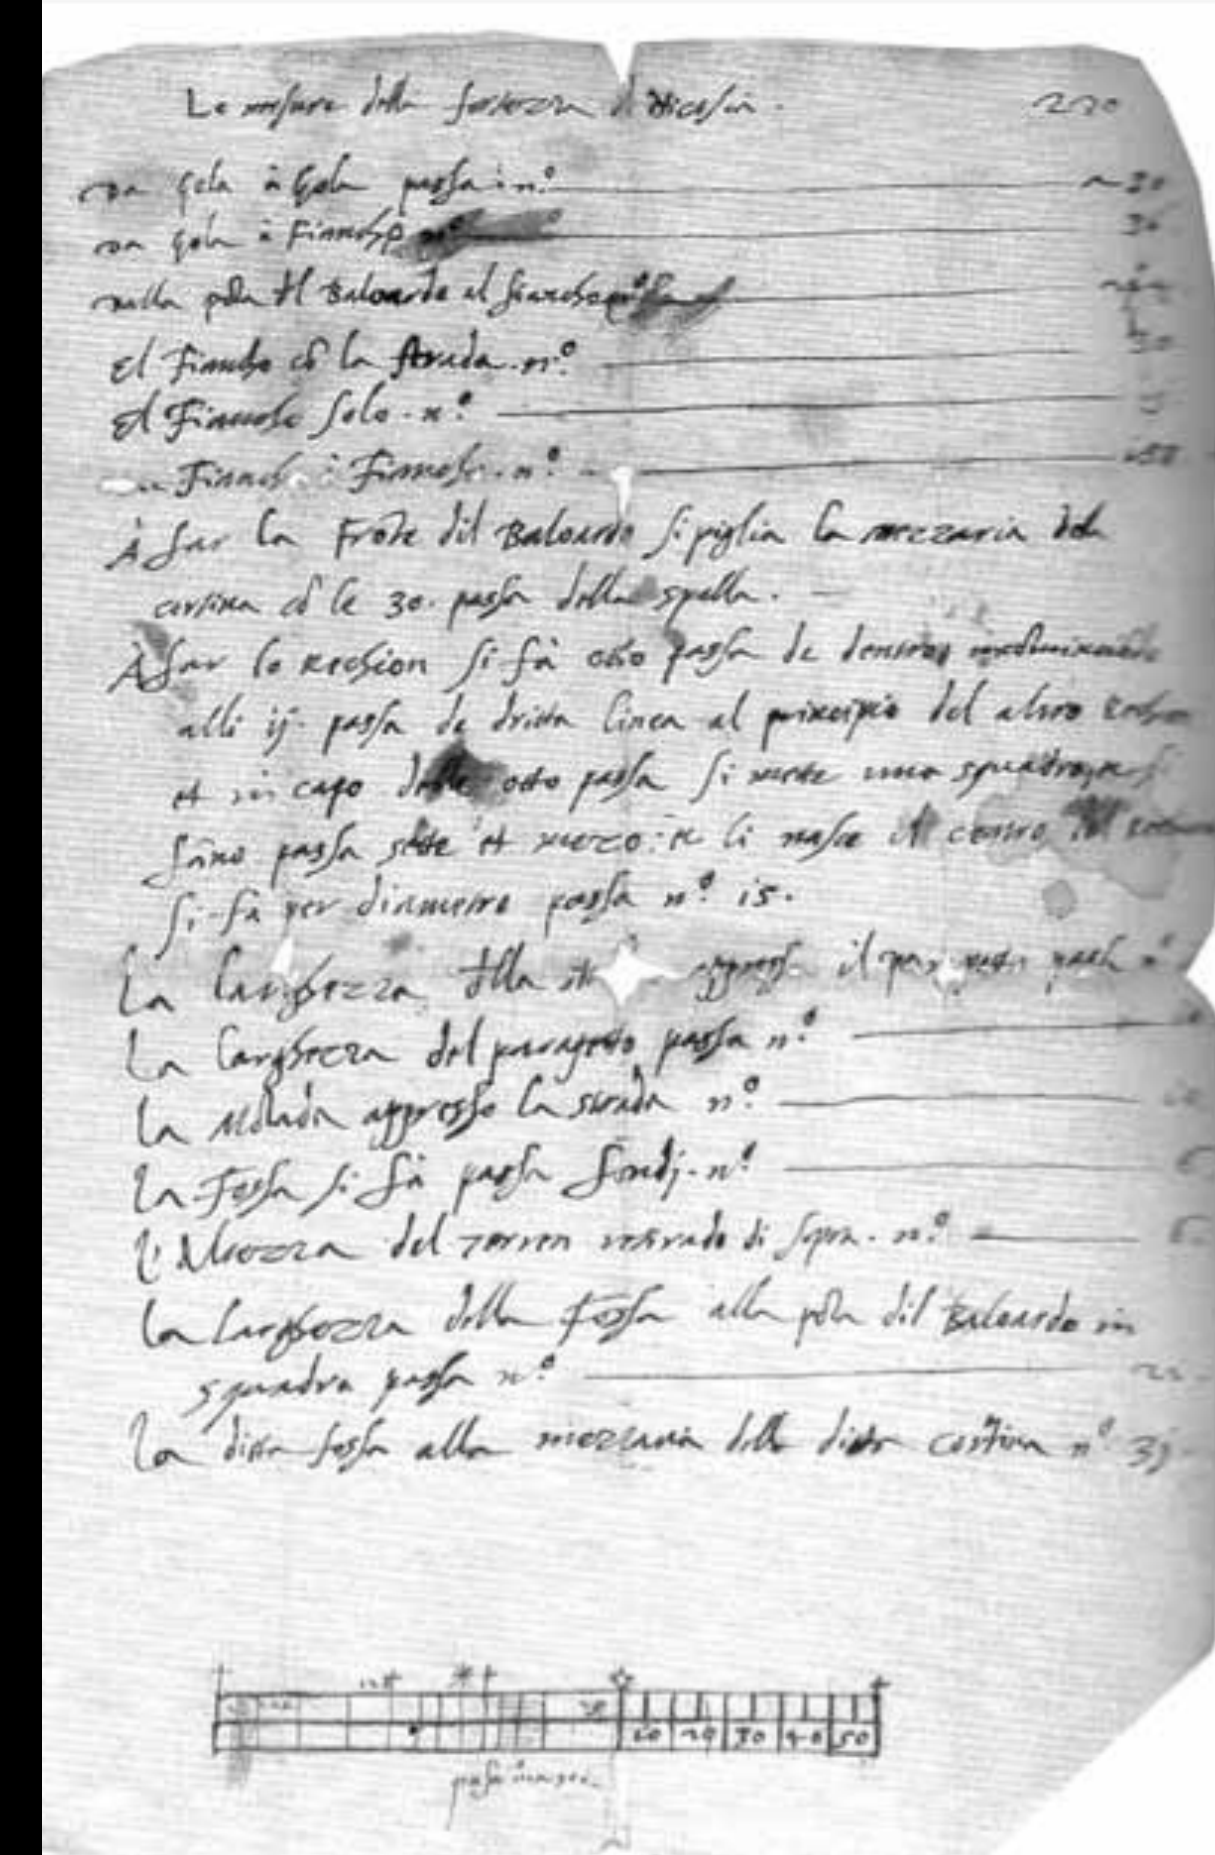 Le mesure della fortezza di Nicosia. 220
Da Gola à Gola passa n.º 30
Da Gola à Fiancho nº 30
Dalla pũta dl Baloardo al fiancho nº
El Fiancho cõ la strada. n.º 30
El Fiancho solo. n.º 15
Fiancho à Fiancho. n.º 150
A far la Frõte dil Baloardo si piglia la mezzaria dela
cortina cõ le 30. passa della spalla.
A far lo rechion si fà otto passa de dentro
alli ij. passa de dritta linea al principio del altro
et in capo delle otto passa si mette una squadra
fãno passa sette et mezo: et li nasce il centro
si fa per diametro passa nº 15.
La larghezza dlla appresso il parapetto passa nº
La larghezza del parapetto passa n.º
La appresso la strada n.º
La Fossa si fà passa fondj. n.º 6
L'Altezza del Terren di sopra. n.º 6
La larghezza della Fossa alla põta dil Baloardo in
squadra passa n.º 22
La ditta fossa alla mezzaria della ditta cortina nº 35
10 20 30 40 50
passa